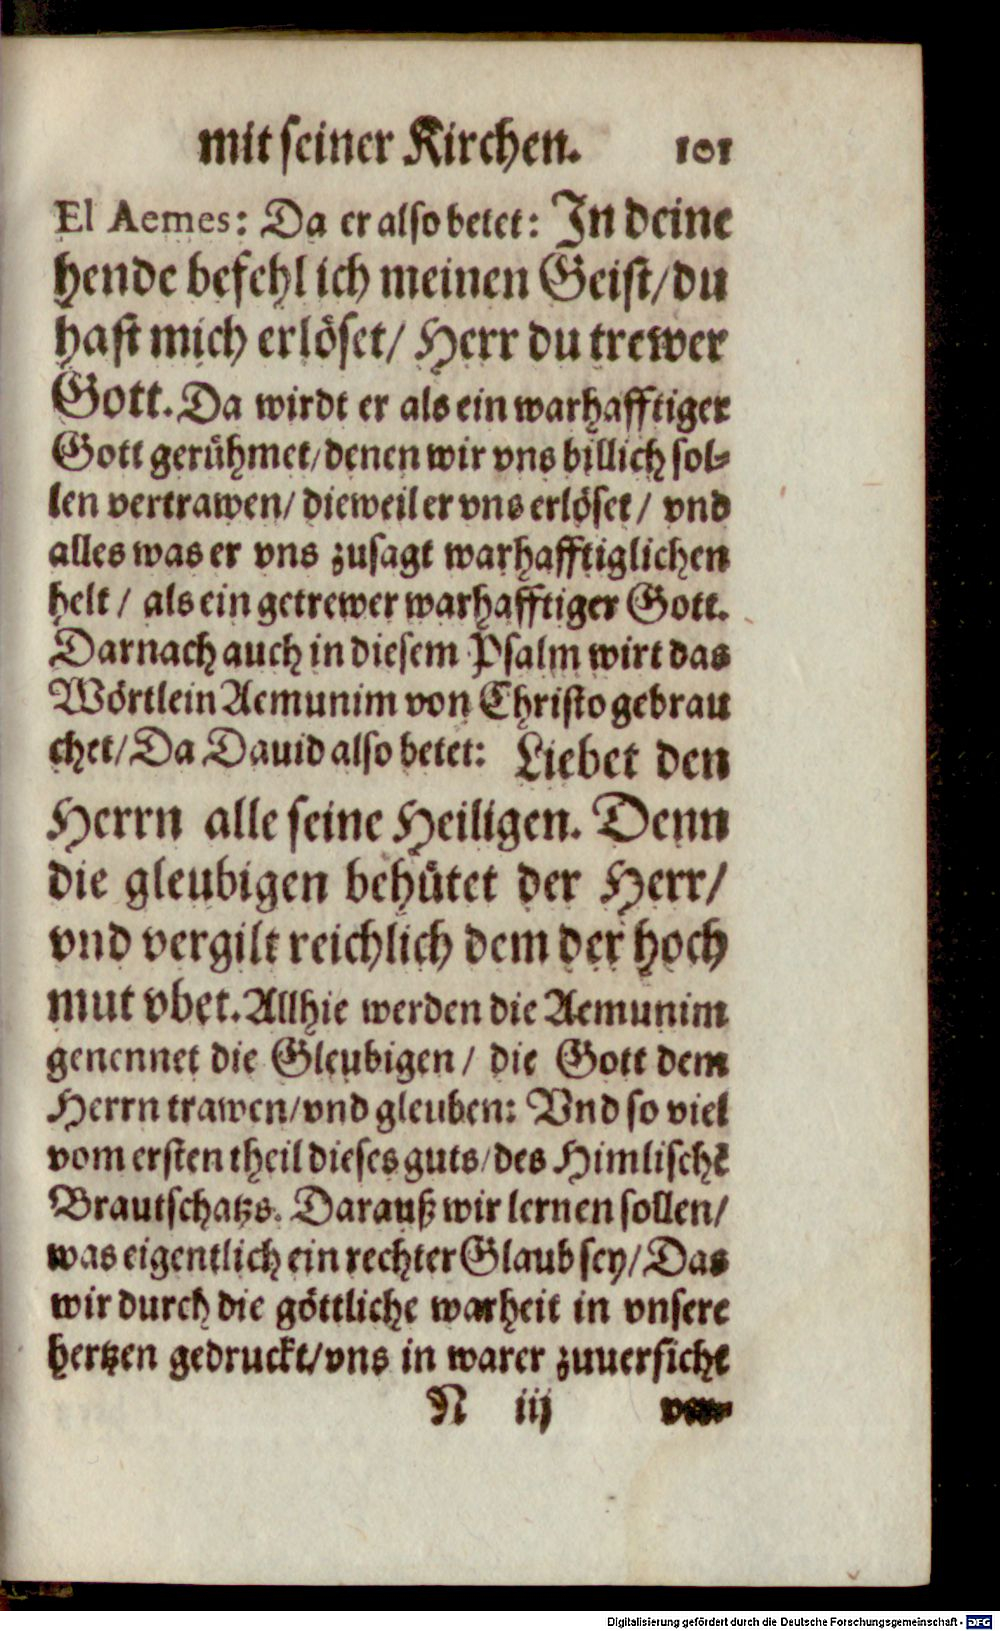 mit seiner Kirchen. 101
El Aemes: Da er also betet: In deine
hende befehl ich meinen Geist/du
hast mich erlöset/ Herr du trewer
Gott. Da wirdt er als ein warhafftiger
Gott gerühmet/denen wir vns billich sol-
len vertrawen/ dieweil er vns erlöset/ vnd
alles was er vns zusagt warhafftiglichen
helt/ als ein getrewer warhafftiger Gott.
Darnach auch in diesem Psalm wirt das
Wörtlein Aemunim von Christo gebrau
chet/Da Dauid also betet: Liebet den
Herrn alle seine Heiligen. Denn
die gleubigen behütet der Herr/
vnd vergilt reichlich dem der hoch
mut vbet. Allhie werden die Aemunim
genennet die Gleubigen/ die Gott dem
Herrn trawen/vnd gleuben: Vnd so viel
vom ersten theil dieses guts/des Himlischē
Brautschatzs. Darauß wir lernen sollen/
was eigentlich ein rechter Glaub sey/Das
wir durch die göttliche warheit in vnsere
hertzen gedruckt/vns in warer zuuersicht
N iij
Digitalisierung gefördert durch die Deutsche Forschungsgemeinschaft - DFG